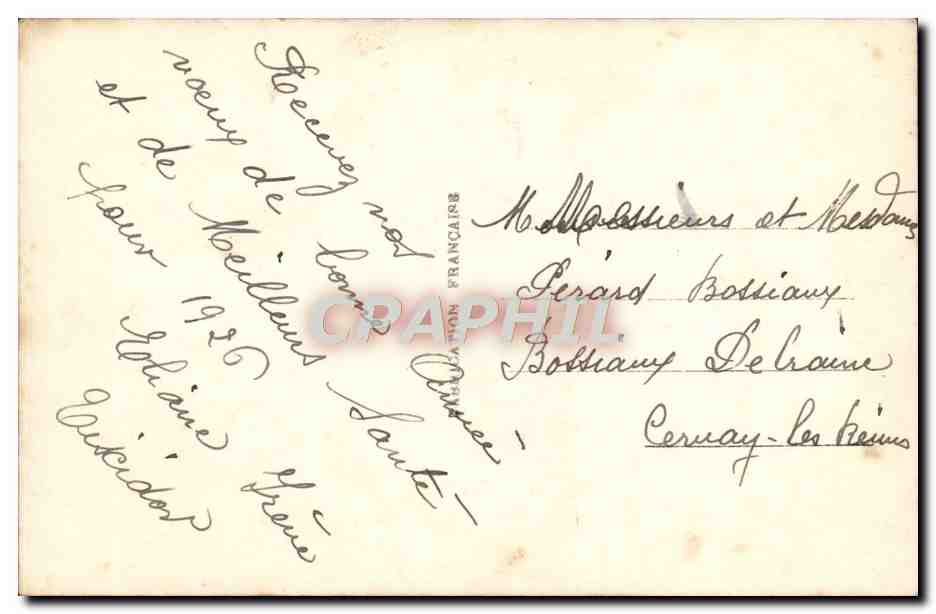 Recevez nos
voeux de bonne Année
et de Meilleurs Santé
pour 1926
Eliane Irène
FABRICATION FRANÇAISE
Messieurs et Mesdames
Pérard Bossiaux
Bossiaux Delraine
Cernay-les Reims
CPAPHIL